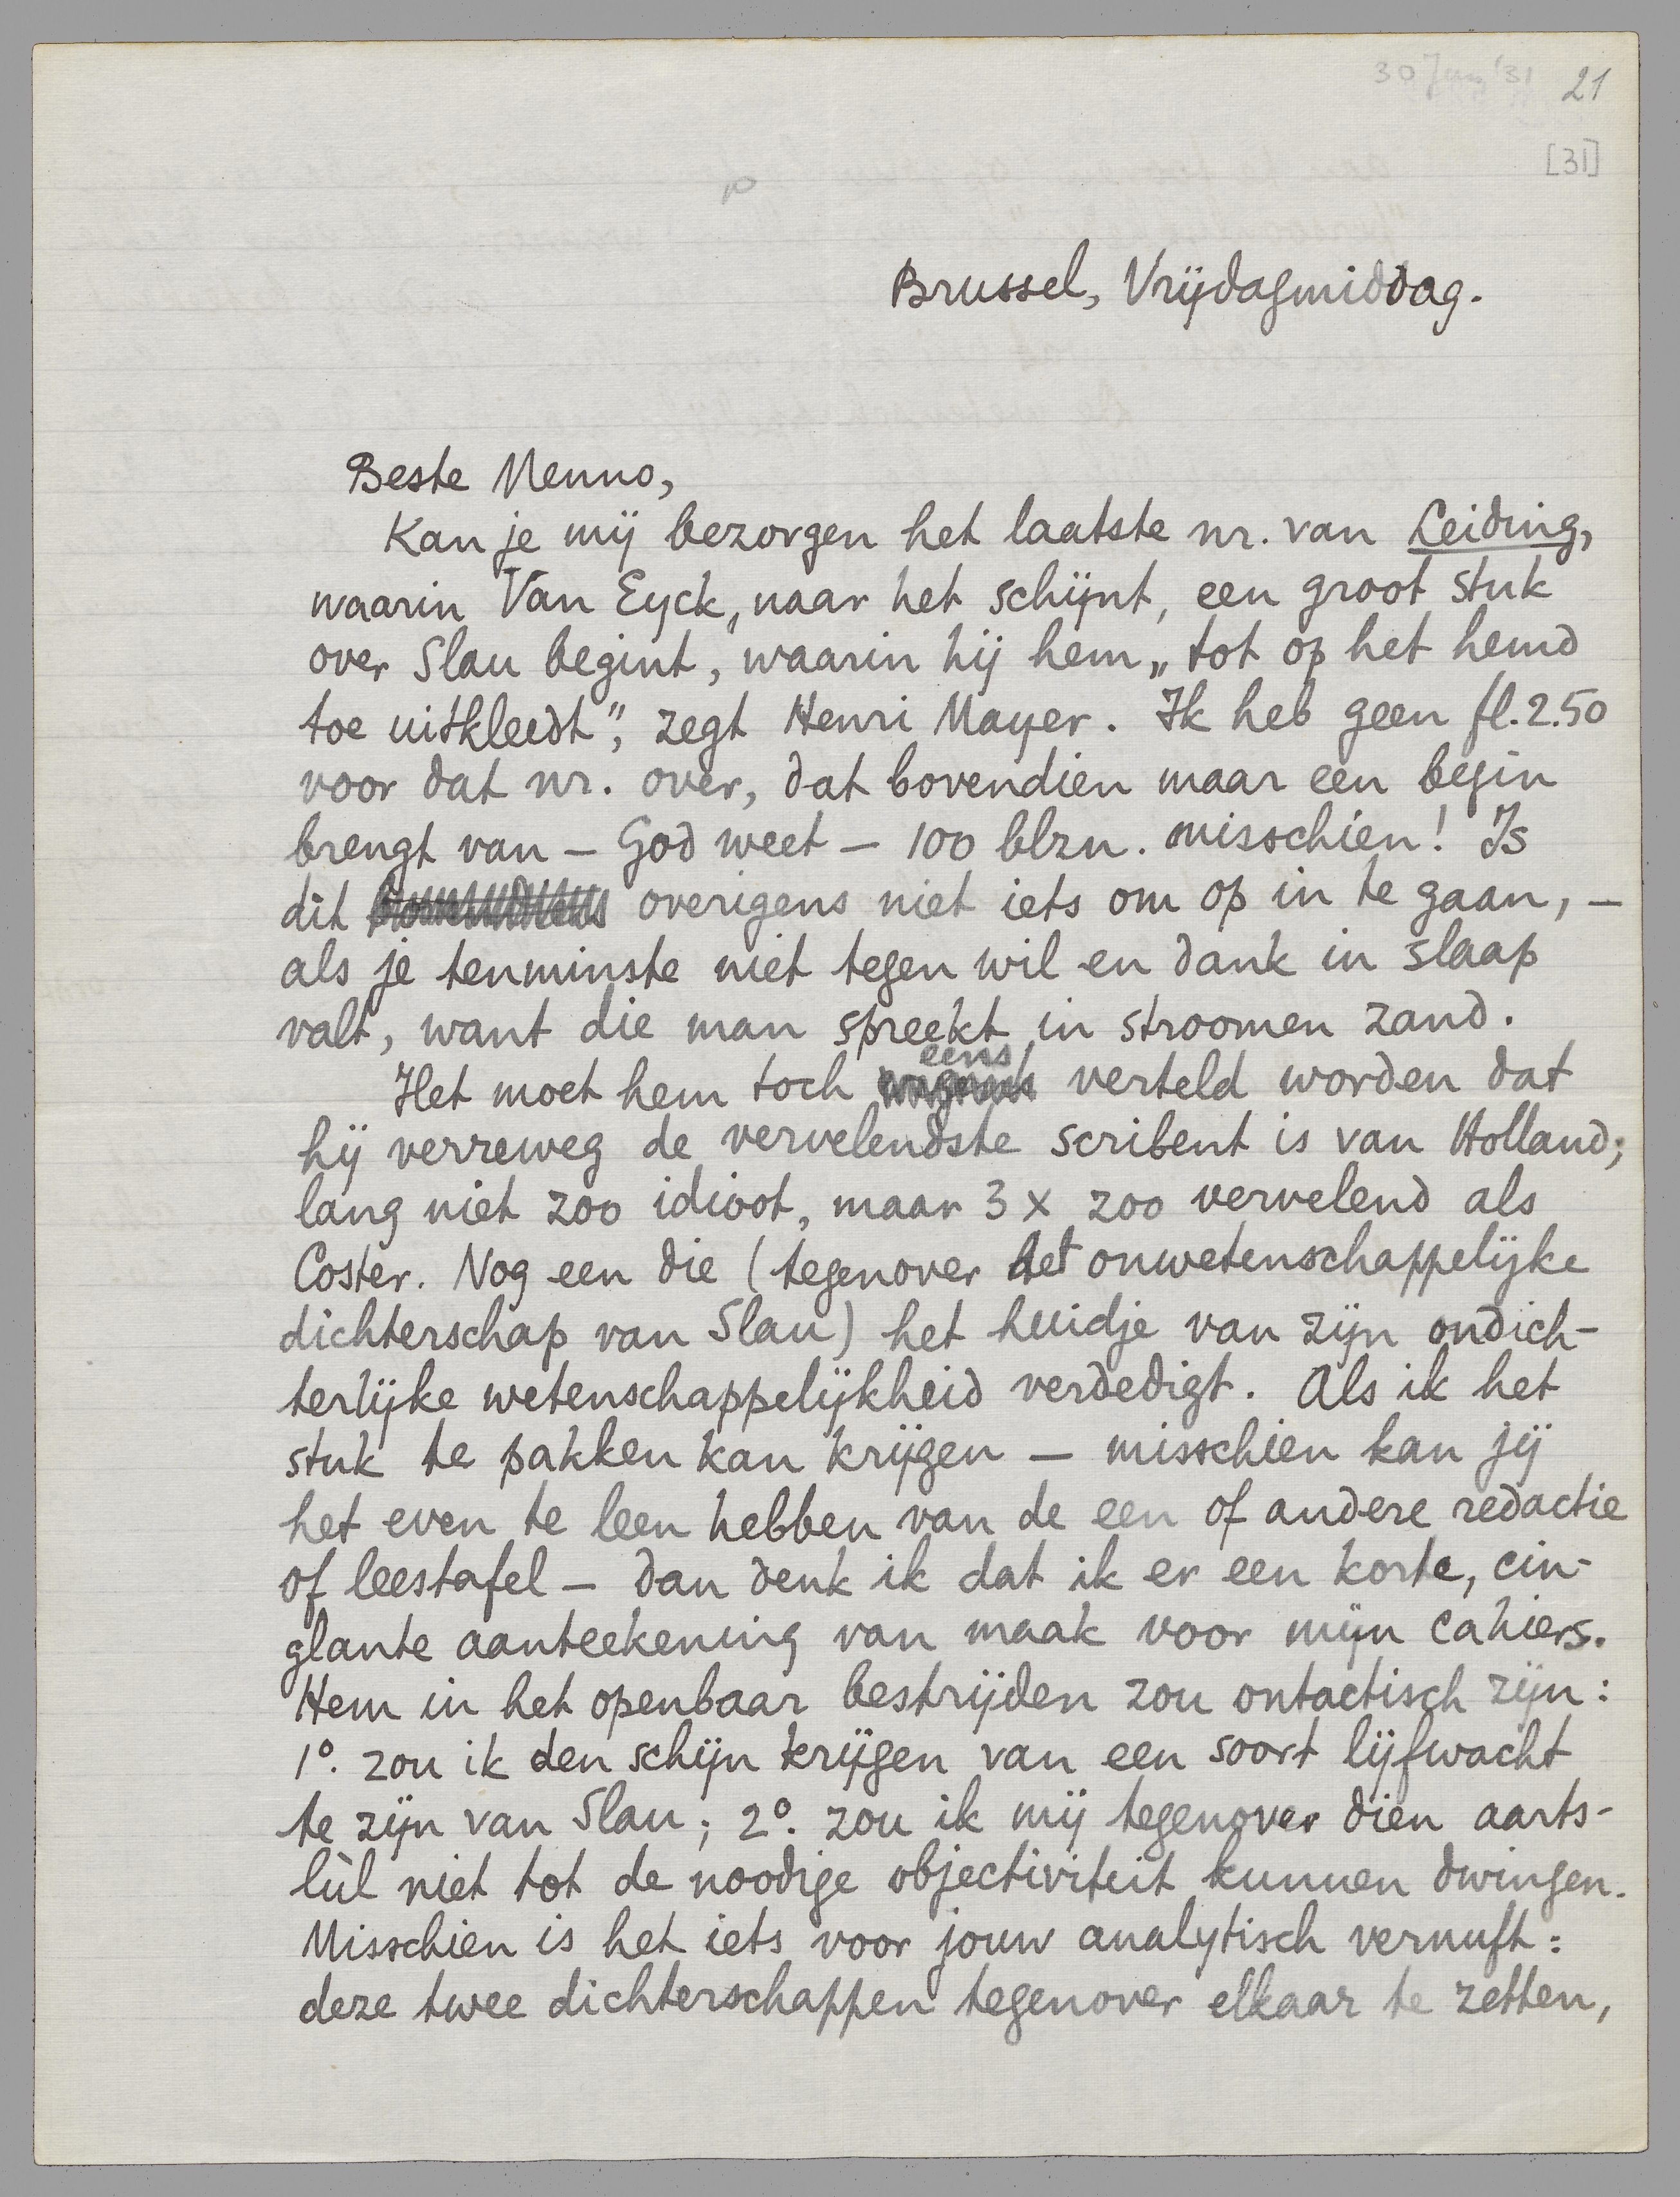 30 Jan '31 21
[31]
Brussel, Vrijdagmiddag.
Beste Menno,
Kan je mij bezorgen het laatste nr. van Leiding,
waarin Van Eyck, naar het schijnt, een groot stuk
over Slau begint, waarin hij hem „tot op het hemd
toe uitkleedt", zegt Henri Mayer. Ik heb geen fl. 2.50
voor dat nr. over, dat bovendien maar een begin
brengt van — God weet — 100 blzn. misschien! Is
dit overigens niet iets om op in te gaan, —
als je tenminste niet tegen wil en dank in slaap
valt, want die man spreekt in stroomen zand.
Het moet hem toch eens verteld worden dat
hij verreweg de vervelendste scribent is van Holland;
lang niet zoo idioot, maar 3 x zoo vervelend als
Coster. Nog een die (tegenover het onwetenschappelijke
dichterschap van Slau) het huidje van zijn ondich-
terlijke wetenschappelijkheid verdedigt. Als ik het
stuk te pakken kan krijgen — misschien kan jij
het even te leen hebben van de een of andere redactie
of leestafel — dan denk ik dat ik er een korte, cin-
glante aanteekening van maak voor mijn cahiers.
Hem in het openbaar bestrijden zou ontactisch zijn:
1º. zou ik den schijn krijgen van een soort lijfwacht
te zijn van Slau; 2º. zou ik mij tegenover dien aarts-
lùl niet tot de noodige objectiviteit kunnen dwingen.
Misschien is het iets voor jouw analytisch vernuft:
deze twee dichterschappen tegenover elkaar te zetten,